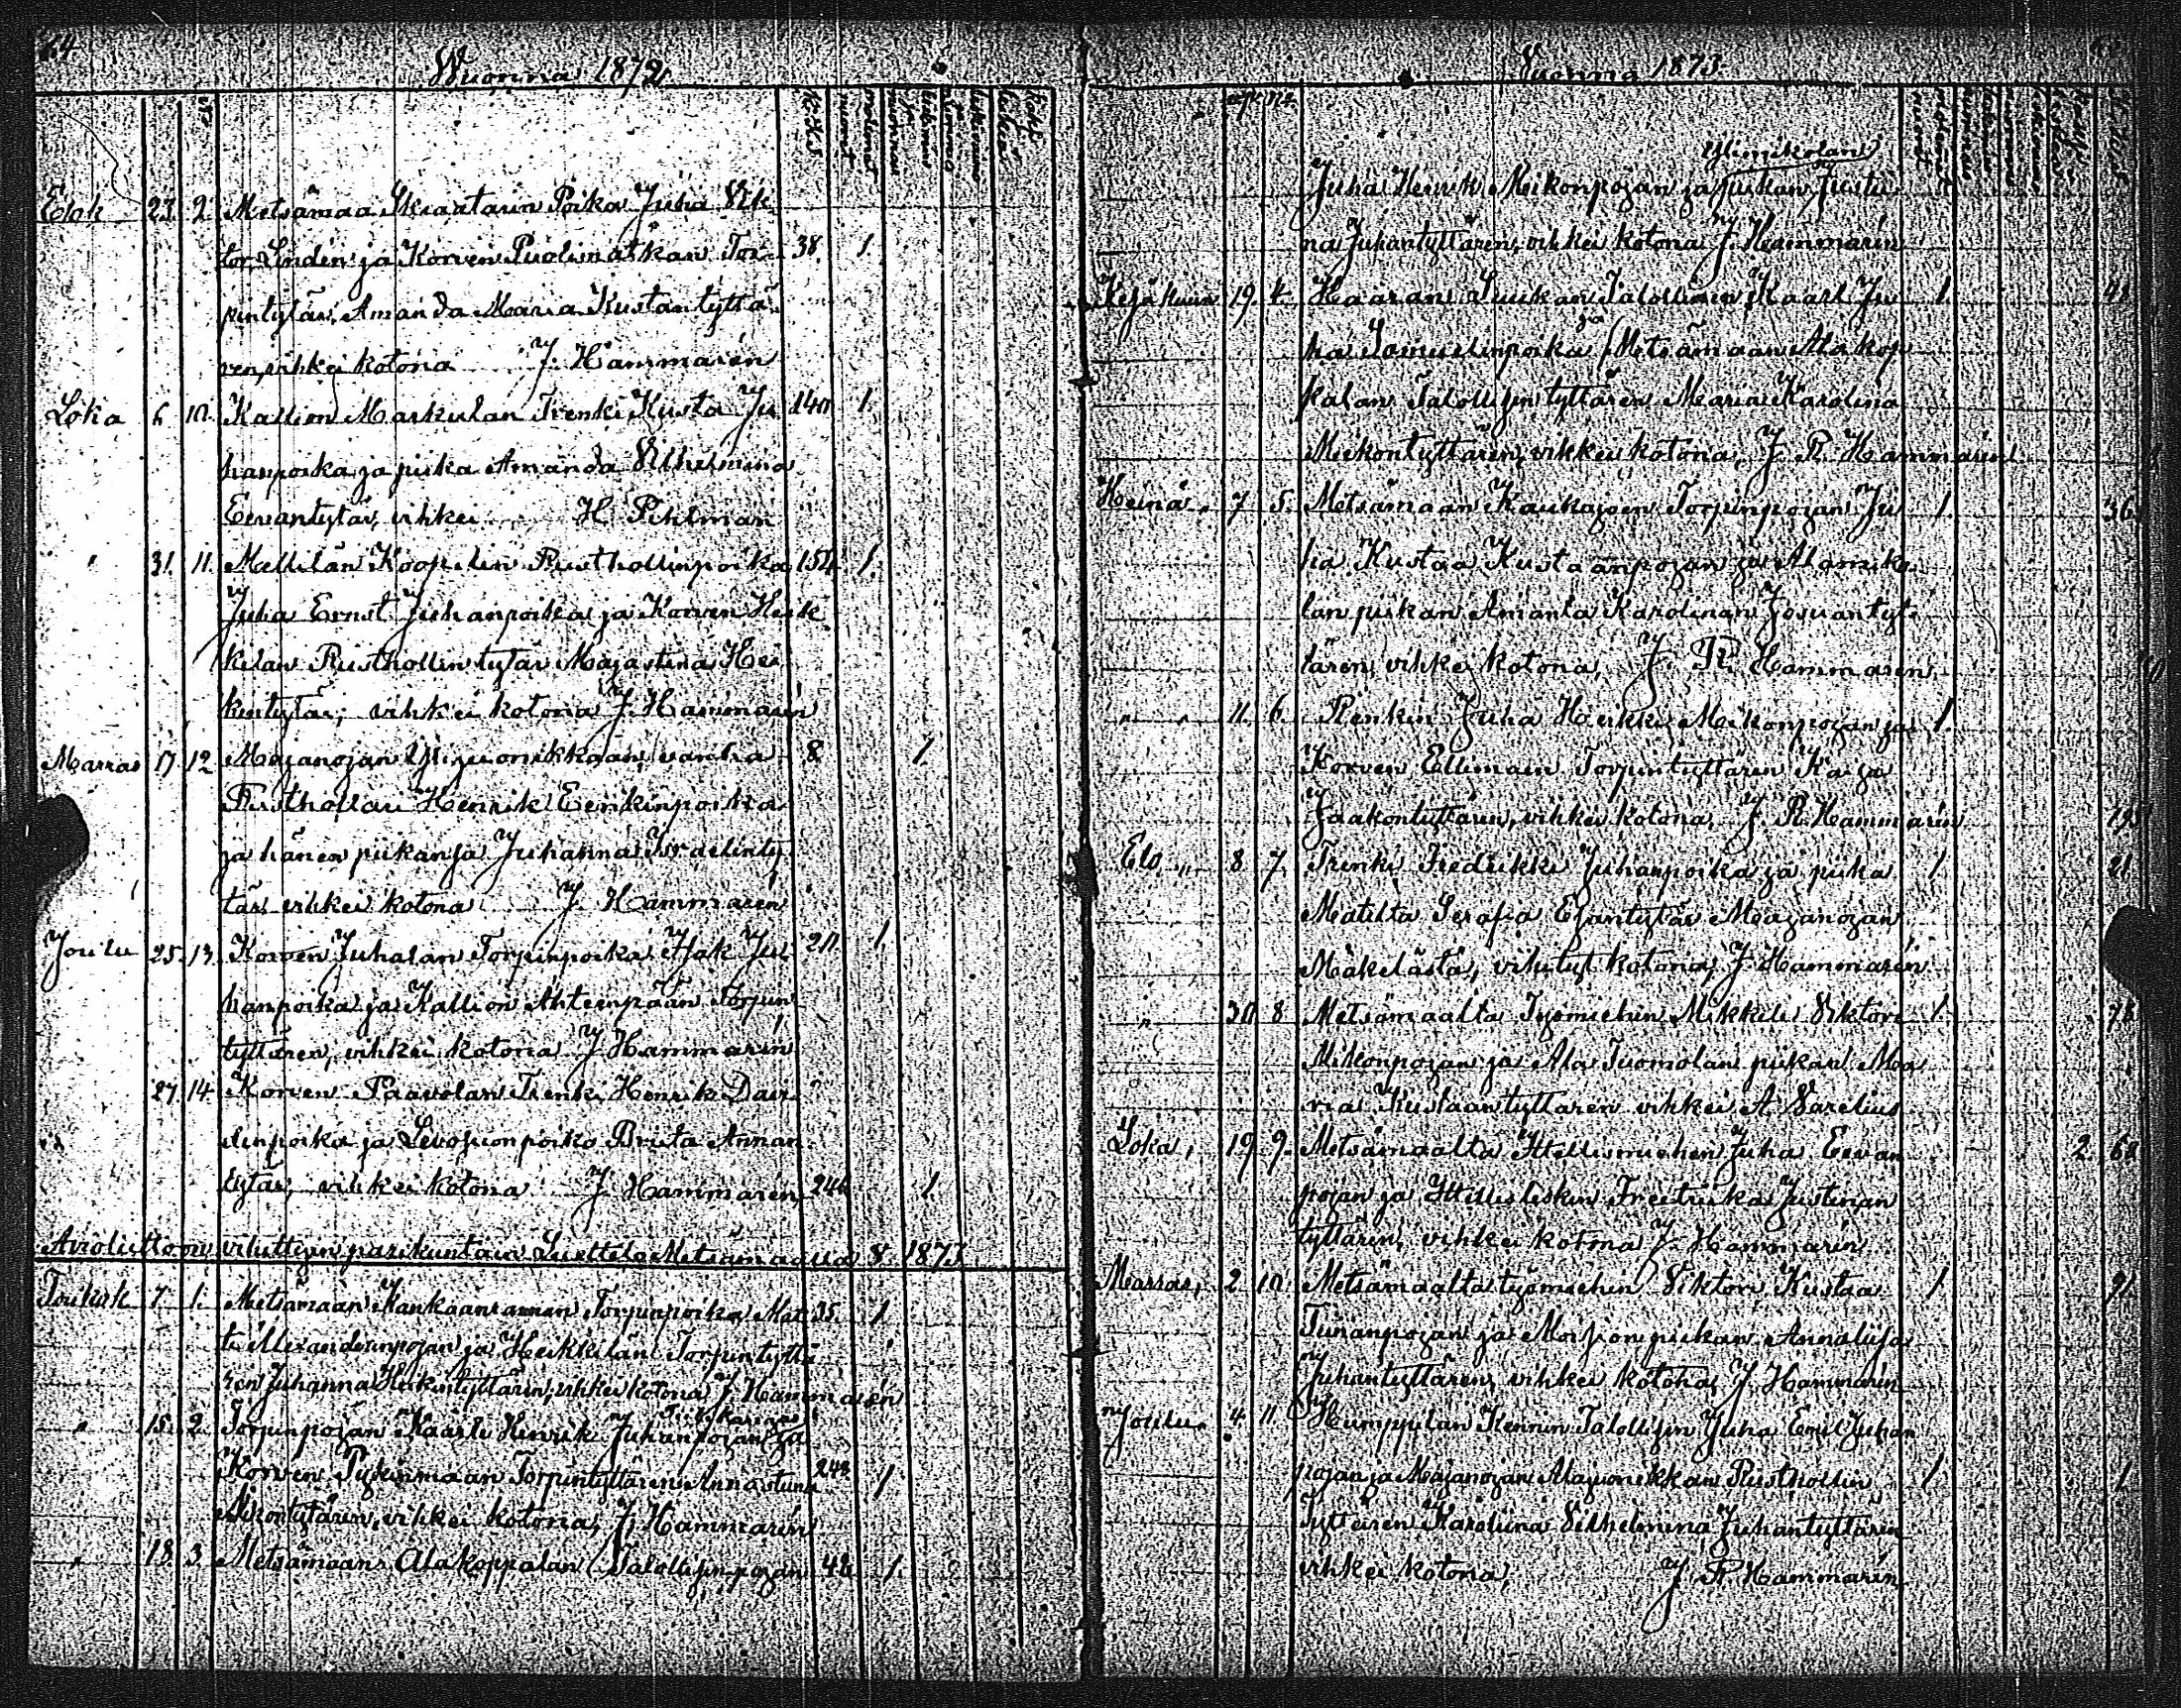 64
Wuonna 1872
K.K.S.
Elok 23. 2. Metsämaa Skraatarin Poika Juha Vik
tor Linden ja Korven Puolimatkan Tor- 38. 1.
pintytär Amanda Maria Kustantyttä
ren, vihkei kotona J. Hammarén
Loka 6 10. Kallion Markulan Trenki Kusta Ju 140 1.
hanpoika ja piika Amanda Vilhelmina
Eevantytär, vihkei H. Pihlman
" 31. 11. Mellilän Koopilin Rusthollinpoika 154. 1.
Juha Ernst Juhanpoika ja Korven Heik
kilan Rusthollin tytär Majastina Hei
kintytär; vihkei kotona J. Hammarén
Marras 17 12 Majanojan Ylijuonikkaan vanha 8 1.
Rusthollari Henrik Eerikinpoika
ja hänen piikansa Juhanna Israelinty
tär vihkei kotona J. Hammarén
Joulu 25. 13. Korven Juhalan Torpinpoika Isak Ju 211. 1.
hanpoika ja Kallion Ahteenpään Torpin
tyttären, vihkei kotona J Hammarén
27. 14. Korven Paavolan Trenki Henrik Davi
dinpoika ja Levosuonpoiko Briita Annan
tytär, vihkei kotona J. Hammarén 246 1.
Avioliittoon vihittyin parikuntain Luettelo Metsämaassa V. 1873
Toukok 7. 1. Metsämaan Kankaanrannan Torpinpoika Mat 35. 1
ti Alexanderinpojan ja Heikkilän Torpintyttä
ren Juhanna Heikintyttären, vihkei kotona J Hammarén
" 15. 2. Torpinpojan Kaarle Henrik Juhanpojan ja
Korven Pykinmaan Torpintyttären Annastina 243 1.
Mikontytären, vihkei kotona, J. Hammarén
" 18. 3. Metsämaan Alakoppalan Talollisen pojan 48 1.
Vuonna 1873.
Ylimikolan
Juha Henrik Mikonpojan ja piikan Justu
na Juhantyttären, vihkei kotona J. Hammarén
Kesäkuun 19. 4. Haaran Luukan Talollinen Kaarl Ju 1. 48
ja
ha Samuelinpoika Metsämaan Alakop
palan Talollisen tyttären Maria Karolina
Mikontyttären, vihkei kotona, J. R. Hammarén
Heinä " 7 5. Metsämaan Kaukajoen Torpinpojan Ju 1. 36.
ha Kustaa Kustaanpojan ja Alamiko
lan piikan Amanta Karolinan Josuantyt
tären, vihkei kotona, J. R. Hammarén
" " 11. 6. Renkin Juha Heikki Mikonpojan ja 1.
Korven Ellimäen Torpintyttären Kaja
Jaakontyttären, vihkei kotona, J. R. Hammarén
Elo " 8 7. Trenki Fredrikki Juhanpoika ja piika 1. 21.
Matilta Serafia Esantytär Majanojan
Mäkelästä, vihityt kotona, J. Hammarén
" 30 8 Metsämaalta Työmiehen Mikkeli Viktori 1.
Mikonpojan ja Ala Tuomolan piikan Ma
ria Kustaantyttären vihkei A Varelius
Loka, 19. 9. Metsämaalta Ittellismiehen Juha Eevan 2. 68
pojan ja Ittellisleskin Freetrika Justinan
tyttären, vihkei kotona J. Hammarén
Marras, 2 10. Metsämaalta työmiehen Viktori Kustaa 1 91.
Tiinanpojan ja Moision piikan Annaliisa
Juhantyttären, vihkei kotona, J. Hammarén
Joulu 4. 11 Humppilan Kennin Talollisen Juha Emil Juhan
pojan ja Majanojan Alajuonikkan Rusthollin 1 1
Tyttären Karoliina Vilhelmina Juhantyttären
vihkei kotona, J. R Hammarén